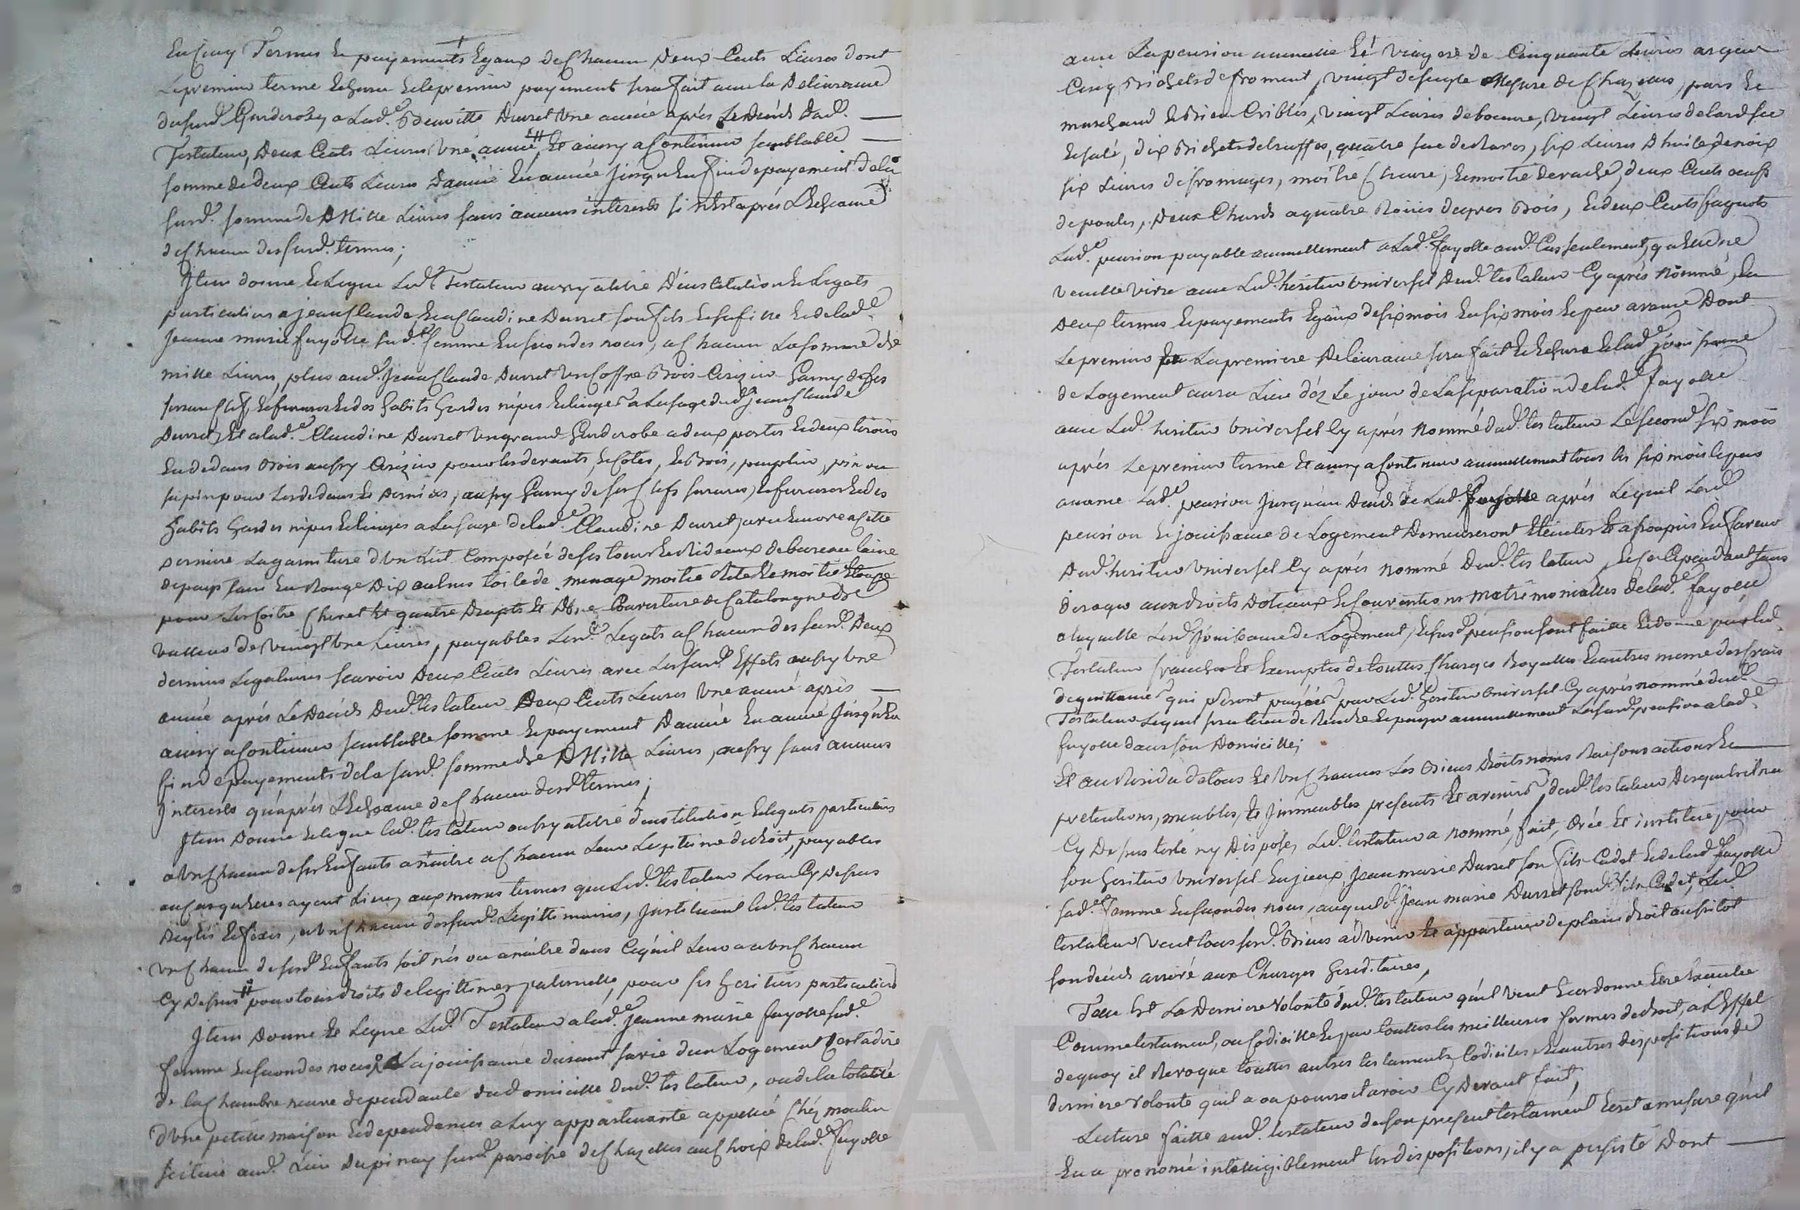 En Cinq Termes Et payements Egaux de Chacun Deux Cents Livres dont
Le premier terme Echeu Et le premier payement sera fait avec la Delivrance
du surd. Garderobe a Lad.e Benoitte Duret Une année après Le Décés Dud.
Testateur, Deux Cents Livres Une année Et ainsy a Continuer semblable
somme de deux Cents Livres D'année En année jusqu'En fin de payement de la
surd. somme de Mille Livres sans aucuns interests si n'est après L'Echeance
de Chacun des surd. termes;
Item donne Et Legue Led. Testateur aussy a titre D'institution Et Legats
particuliers a jean Claude Et a Claudine Duret son fils Et sa fille Et de lad.e
Jeanne marie fayolle sad.e femme En secondes noces, a Chacun La somme de
mille Livres, plus aud. Jean Claude Duret Un Coffre Bois Cerizier Garny de ses
serrure Clef, Et ferrures Et des habits hardes nipes Et linges a L'usage dud. jean Claude
Duret, Et a lad.e Claudine Duret Un grand Garderobe a deux portes Et deux tiroirs
En dedans Bois aussy Cerizier pour les devants Et Cotés, Et Bois, peuplier, pin ou
sapin pour Les dedans Et Derniers, aussy Garny de ses Clefs serrures, Et ferrures Et des
habits hardes nipes Et linges a L'usage de lad.e Claudine Duret, avec Encore a Cette
derniere La garniture d'Un Lit Composée de ses tours Et Rideaux de bureau laine
de pays faire En Rouge Dix aulnes toile de menage moitié Rite Et moitié Etoupe
pour Les Coitre Chevet Et quatre Draps Et D'Une Couverture de Catalongne de
valleur de vingt Une Livres, payables Lesd. Legats a Chacun des surd. Deux
derniers Legataires sçavoir Deux Cents Livres avec Les surd. Effets aussy Une
année après Le Décés Dud. testateur Deux Cents Livres Une année après
ainsy a Continuer semblable somme Et payement D'année En année jusqu'En
fin de payements de la surd. somme de Mille Livres, aussy sans aucuns
interests qu'après L'Echeance de Chacun desd. termes;
Item Donne Et Legue led. testateur aussy a titre d'institution Et legats particuliers
a Un Chacun de ses Enfants a naitre a Chacun Leur Legitime de droit, payables
aux mêmes termes que Led. testateur Les a Cy Dessus
Reglés Et fixés, a Un Chacun des surd. Legitimaires, Instituant led. testateur
Un Chacun de sesd. Enfants soit nés ou a naitre dans Ce qu'il Leur a a Un Chacun
Cy Dessus pour tous droits de legitimes paternelle, pour ses heritiers particuliers
Item Donne Et Legue Led. Testateur a lad.e Jeanne marie fayolle sad.e
femme En secondes noces La jouissance durant sa vie d'un Logement C'est a dire
de la Chambre neuve dependante du domicille dud. testateur, ou de la totalité
d'Une petitte maison Et dependances a Luy appartenante appellée Chéz moulin
scituée aud. Lieu Dupinay surd. paroisse de Chazelles au Choix de lad.e fayolle
avec La pension annuelle Et viagere de Cinquante Livres argent
Cinq Bichets de froment, vingt de seigle Mesure de Chazelles, purs Et
marchand Et Bien Criblés, vingt Livres de beurre, vingt Livres de lard sec
Et salé, dix Bichets de truffes, quatre sac de Raves, six Livres D'huile de noix
six Livres de fromages, moitié Chevre, Et moitié de vache, deux Cents œufs
de poules, Deux Chards a quatre Roües de gros Bois, Et deux Cents fagots
Lad.e pension payable annuellement a Lad.e fayolle aud. Cas seulement, qu'Elle ne
veuille vivre avec Led. heritier Universel Dud. testateur Cy après Nommé, En
Deux termes Et payements Egaux de six mois En six mois Et par avance Dont
Le premier La premiere Delivrance sera fait Et Echeu Et lad.e jouissance
de Logement aura Lieu déz Le jour de La separation de lad.e fayolle
avec Led. heritier Universel Cy après Nommé dud. testateur Le second six mois
après Le premier terme Et ainsy a Continuer annuellement tous les six mois Et par
avance Lad.e pension jusqu'au Decés de Lad.e fayolle après Lequel Lesd.
pension Et jouissance de Logement Demeureront Eteintes Et assoupies En faveur
Dud. heritier Universel Cy après nommé Dud. testateur, Et sans Cependant
deroger aux droits Dotaux Et Conventions Matrimonialles de lad.e fayolle
a laquelle Lesd. jouissance de Logement, Et surd. pension sont faitte Et donné par led.
Testateur franches Et Exemptes de touttes Charges Royalles Et autres meme des frais
de quittance qui seront payées par Led. heritier Universel Cy après nommé dud.
Testateur Lequel sera tenu de Rendre Et payer annuellement La surd. pension a lad.e
fayolle dans son Domicille;
Et au Residu de tous Et Uns Chacuns Les Biens droits noms Raisons actions Et
pretentions, meubles, Et Immeubles presents Et avenirs dud. testateur Desquels il n'a
Cy Dessus testé ny Disposé, Led. testateur a nommé, fait, Créé Et institué, pour
son heritier Universel Jean marie Duret son fils Cadet Et de lad.e fayolle
sad.e femme En secondes noces, auquel d. Jean marie Duret sond. fils Cadet, Led.
testateur veut tous sesd. Biens advenir Et appartenir de plain droit aussitot
son deces arrivé aux Charges hereditaires,
Telle Est La Derniere volonté dud. testateur qu'il veut Et ordonne Etre Exécutée
Comme testament, ou Codicille Et par touttes les meilleures formes de droit, a L'Effet
de quoy il Revoque touttes autres testaments Codicilles, Et autres dispositions de
derniere volonté qu'il a ou pourroit avoir Cy Devant fait,
Lecture faitte aud. testateur de son present testament Ecrit a mesure qu'il
En a prononcé intelligiblement les dispositions, il y a persisté Dont